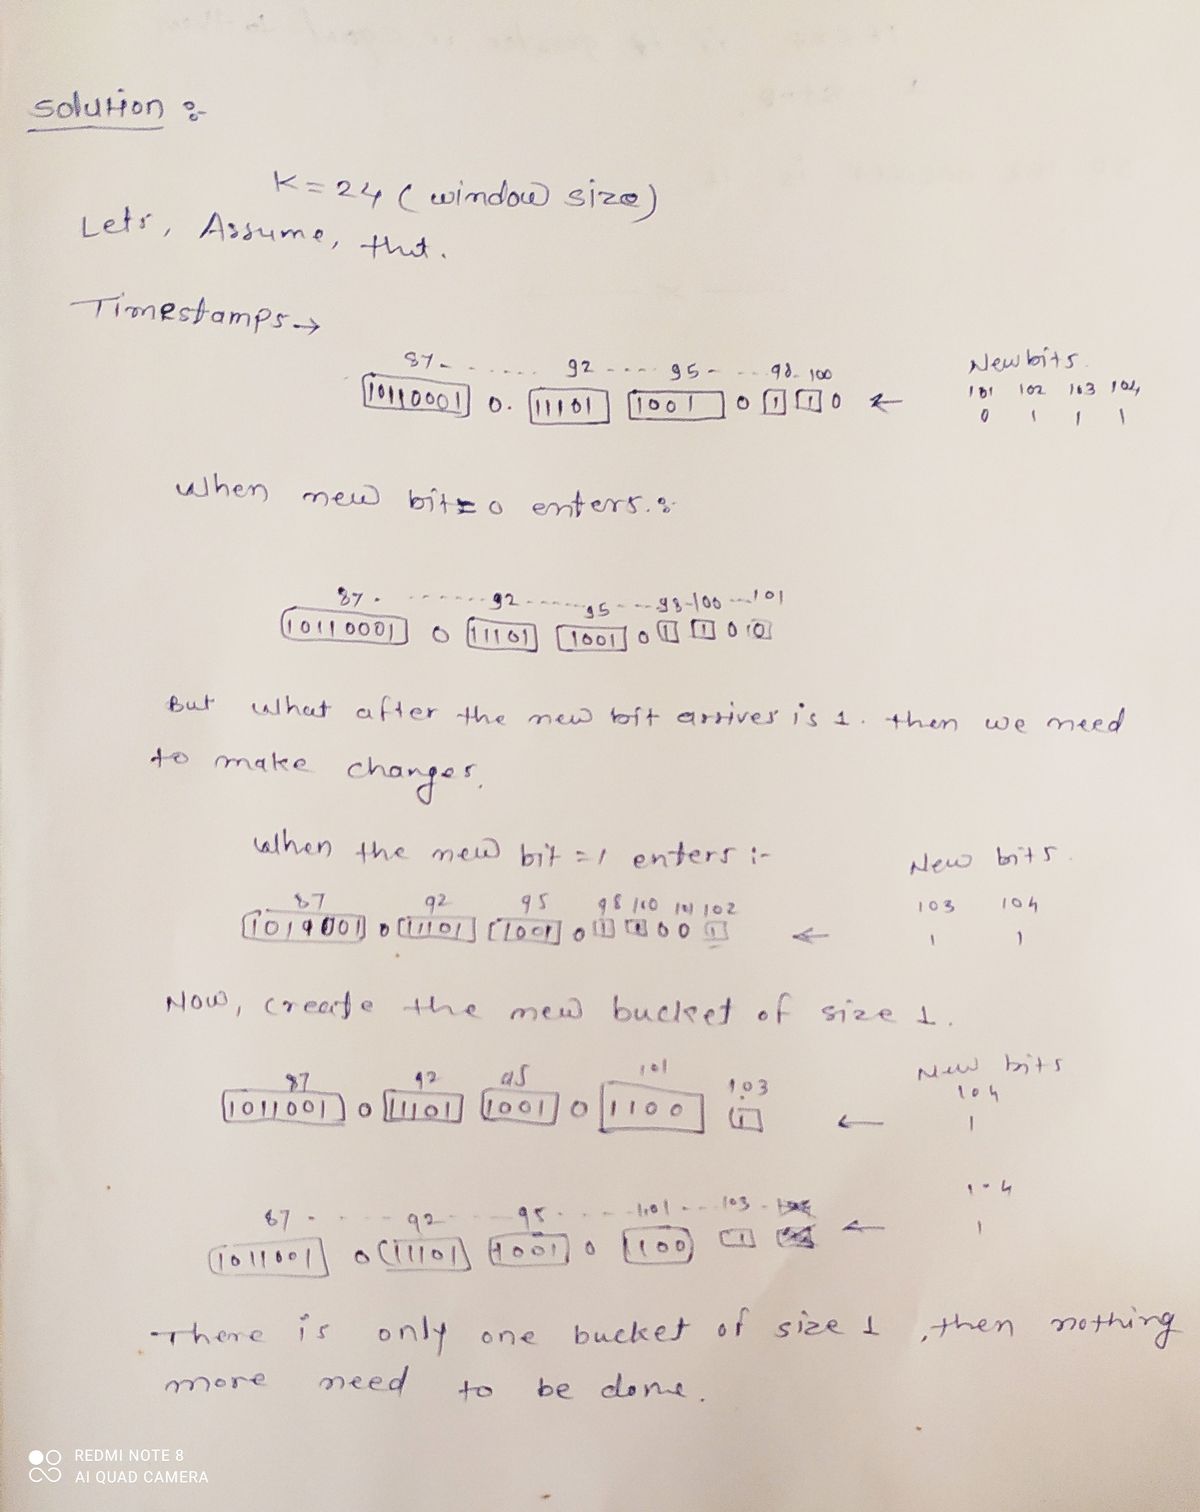 Solution :-
K = 24 ( window size)
Lets, Assume, tht.
Timestamps →
87 - ...... 92 ---- 95 - ...98 - 100
10110001 0. 11101 1001 0 1 1 0 ←
New bits.
101 102 103 104
0 1 1 1
When new bit = 0 enters. :-
87 . ....... 92 ------ 95 ---98-100 --- 101
10110001 0 11101 1001 0 1 1 0 0
But what after the new bit arrives is 1. then we need
to make changes.
When the new bit = 1 enters :-
87 92 95 98 100 101 102
0 11101 1001 0 1 1 0 0 1 ←
New bits.
103 104
1 1
Now, create the new bucket of size 1.
87 92 95 101 103
1011001 0 11101 1001 0 1100 1 ←
New bits
104
1
87 - ---- 92 ---- 95 . ... 101 --- 103 -
1011001 0 11101 1001 0 1100 1 ←
104
1
There is only one bucket of size 1 , then nothing
more need to be done.
REDMI NOTE 8
AI QUAD CAMERA